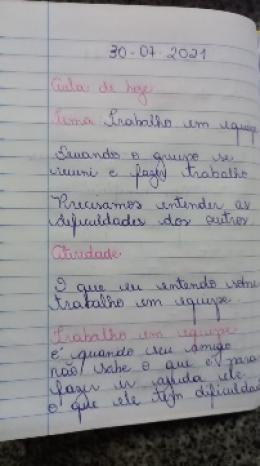 30-07-2021
Aula de hoje
Tema Trabalho em equipe
Quando o grupo se
reuni e fazer trabalho
Precisamos entender as
dificuldades dos outros
Atividade
O que eu entendo sobre
trabalho em equipe
Trabalho em equipe
é quando seu amigo
não sabe o que é para
fazer ajuda ele
o que ele tem dificuldade